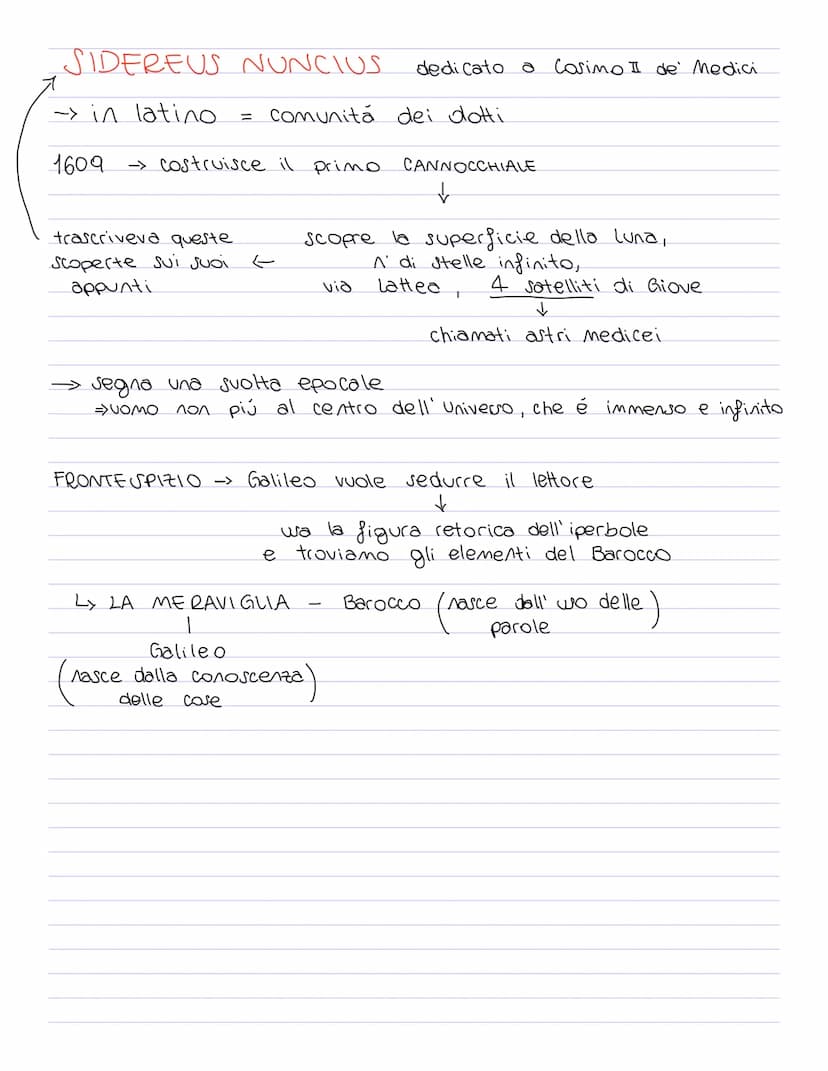 SIDEREUS NUNCIUS dedicato a Cosimo II de' Medici
→ in latino = comunitá dei dotti
1609 → costruisce il primo CANNOCCHIALE
↓
trascriveva queste scopre la superficie della luna,
scoperte sui suoi ← n° di stelle infinito,
appunti via lattea, 4 satelliti di Giove
↓
chiamati astri medicei
→ segna una svolta epocale
⇒ uomo non piú al centro dell'Universo, che é immenso e infinito
FRONTESPIZIO → Galileo vuole sedurre il lettore
↓
usa la figura retorica dell'iperbole
e troviamo gli elementi del Barocco
↳ LA MERAVIGLIA - Barocco (nasce dall'uso delle
parole)
Galileo
(nasce dalla conoscenza
delle cose)